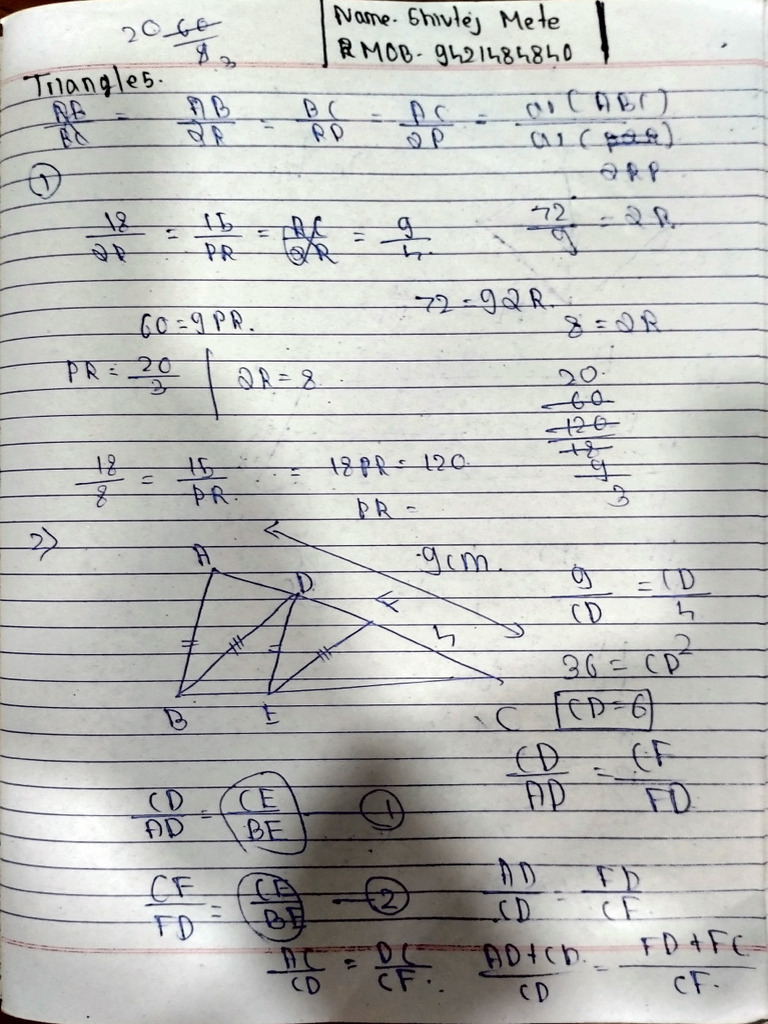 20 60/8 3
Name. Shivtej Mete
MOB- 9421484840
Triangles.
AB/QR = BC/RP = AC/QP = ar(ABC)/ar(QRP)
①
18/QR = 15/PR = AC/QR = 9/4
72/9 = QR
72 = 9QR.
60 = 9PR.
8 = QR
PR = 20/3 | QR = 8
20
60
120
18
9
3
18/8 = 15/PR = 18PR = 120
PR =
2)
A
D
9cm.
9/CD = CD/4
4
36 = CD²
B
E
C
CD = 6
CD/AD = CF/FD
CD/AD = CE/BE - ①
CF/FD = CE/BE - ②
AD/CD = FD/CF
AC/CD = DC/CF.
AD+CD/CD = FD+FC/CF.